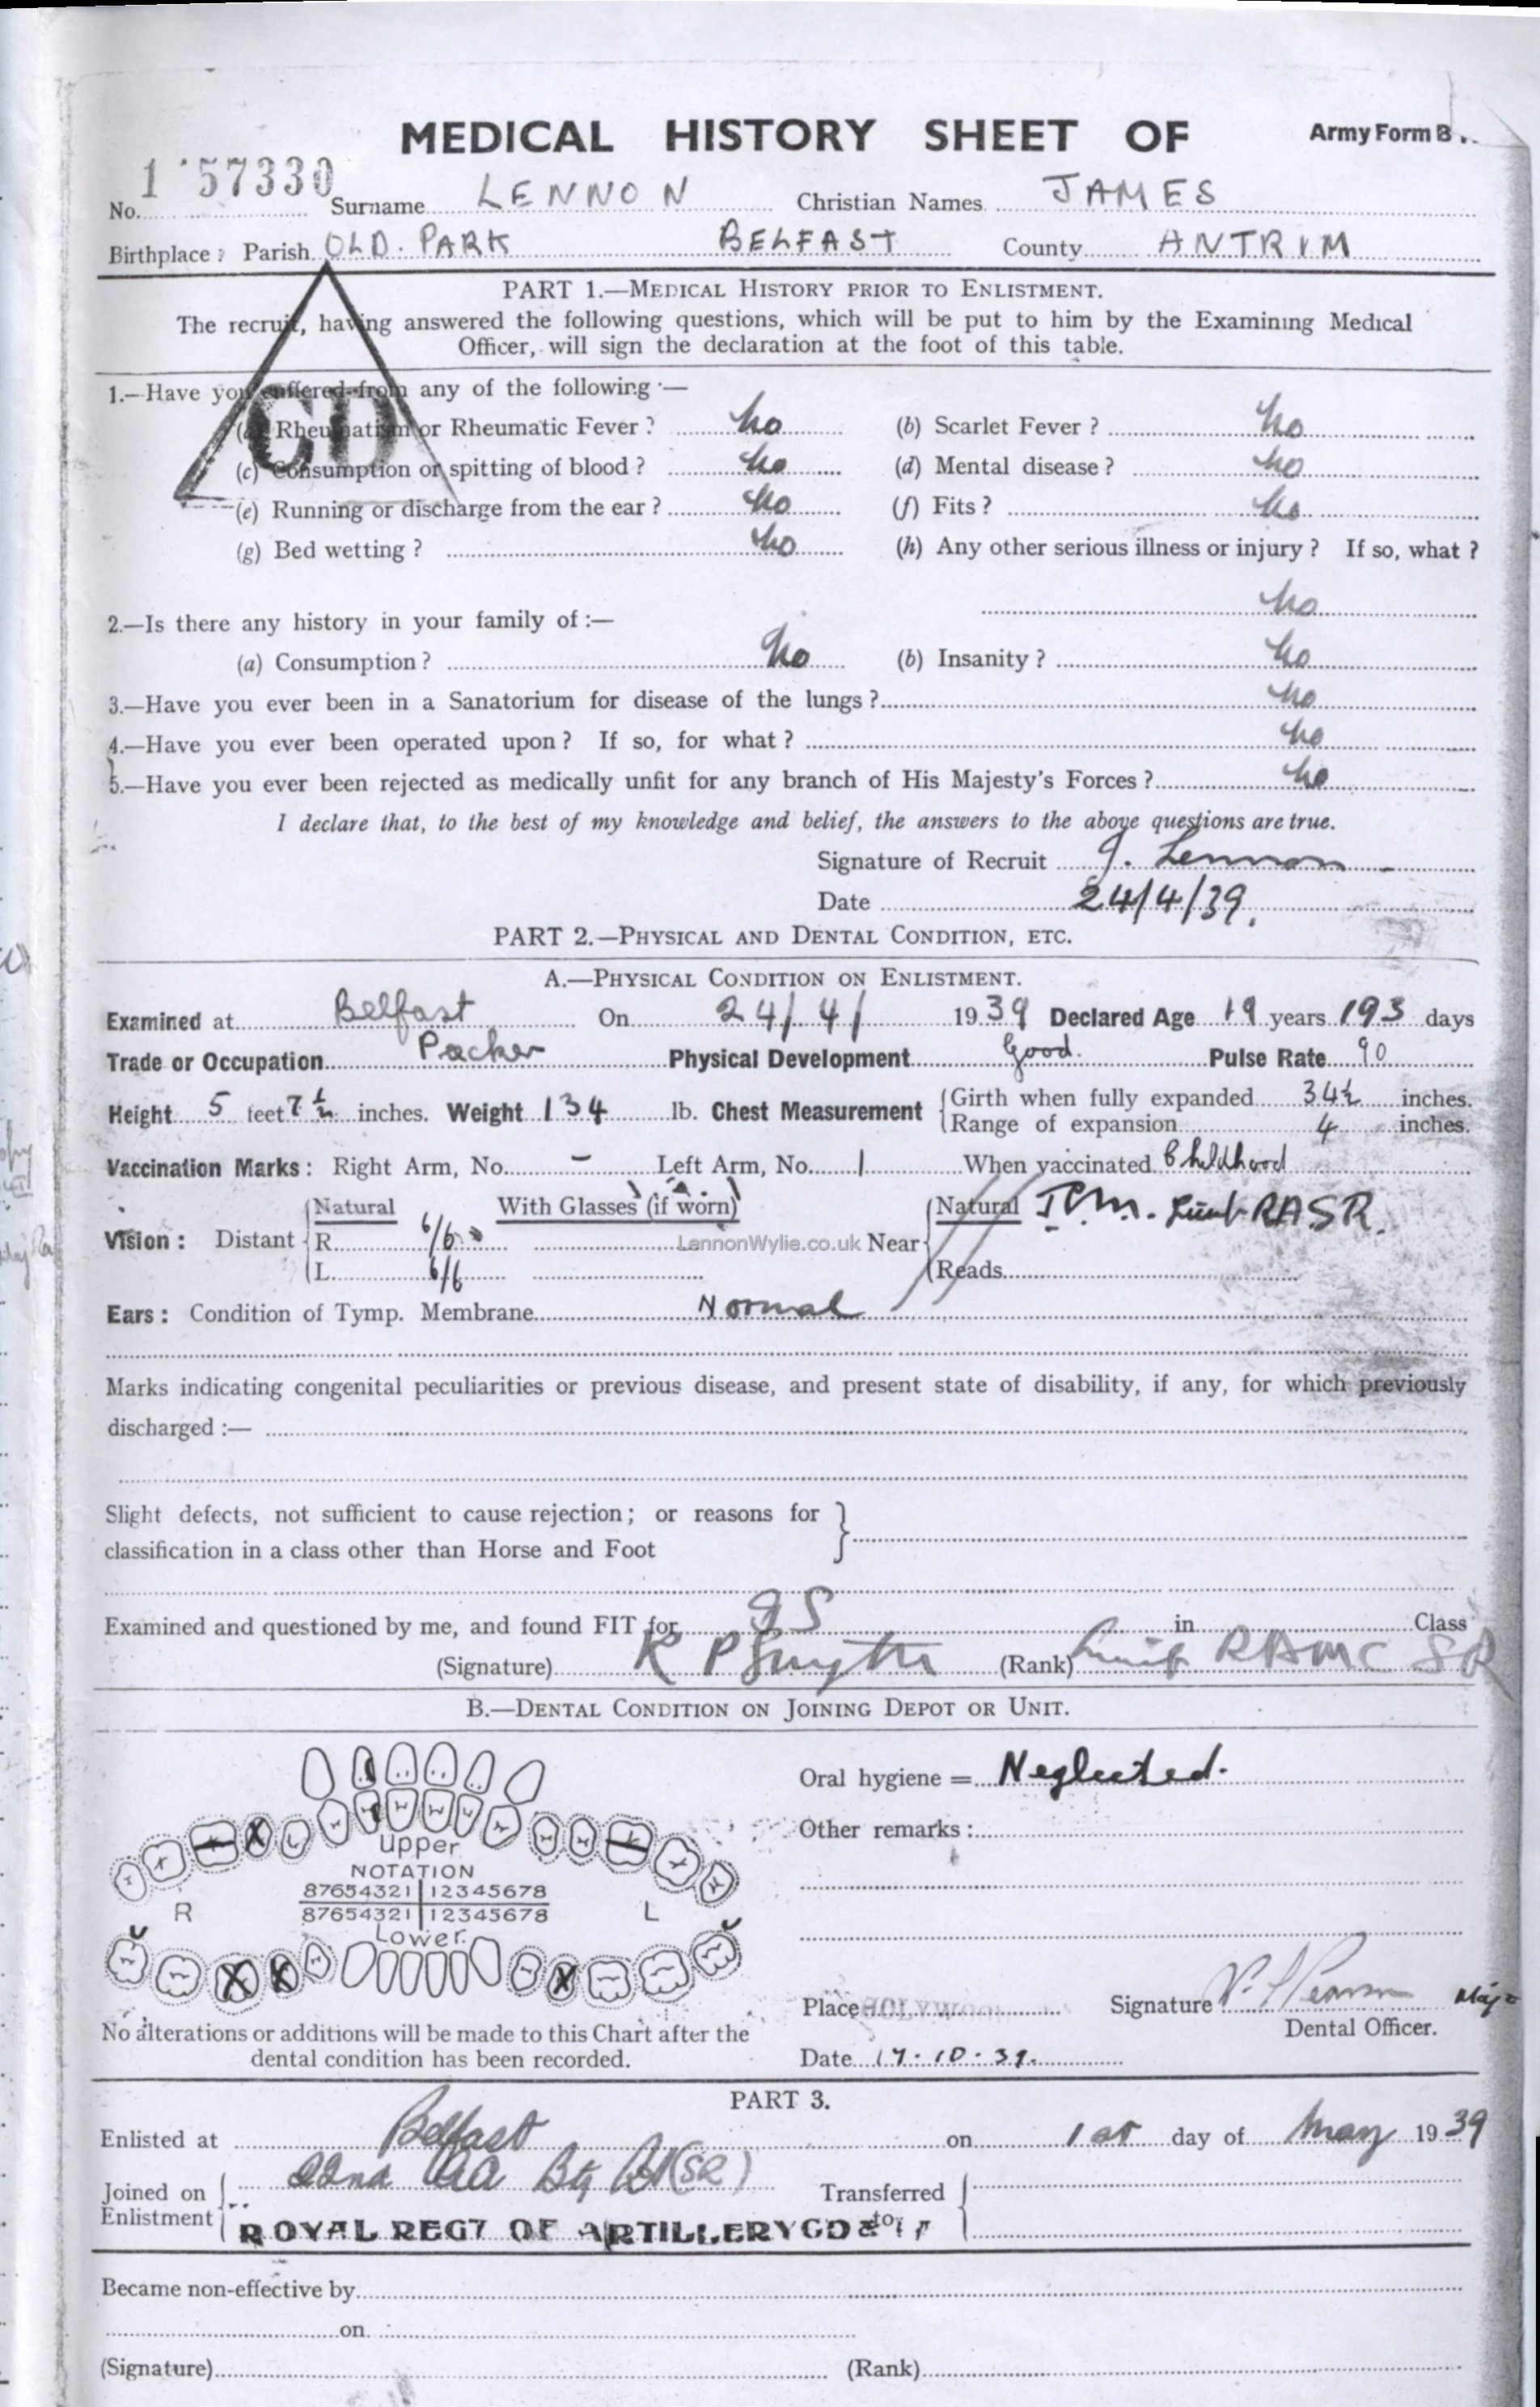 MEDICAL HISTORY SHEET OF Army Form B
No. 1 57330 Surname LENNON Christian Names JAMES
Birthplace: Parish OLD. PARK BELFAST County ANTRIM
PART 1.—MEDICAL HISTORY PRIOR TO ENLISTMENT.
The recruit, having answered the following questions, which will be put to him by the Examining Medical
Officer, will sign the declaration at the foot of this table.
CD
1.—Have you suffered from any of the following :—
(a) Rheumatism or Rheumatic Fever? No (b) Scarlet Fever? No
(c) Consumption or spitting of blood? No (d) Mental disease? No
(e) Running or discharge from the ear? No (f) Fits? No
(g) Bed wetting? No (h) Any other serious illness or injury? If so, what?
No
2.—Is there any history in your family of :—
(a) Consumption? No (b) Insanity? No
3.—Have you ever been in a Sanatorium for disease of the lungs? No
4.—Have you ever been operated upon? If so, for what? No
5.—Have you ever been rejected as medically unfit for any branch of His Majesty's Forces? No
I declare that, to the best of my knowledge and belief, the answers to the above questions are true.
Signature of Recruit J. Lennon
Date 24/4/39.
PART 2.—PHYSICAL AND DENTAL CONDITION, ETC.
A.—PHYSICAL CONDITION ON ENLISTMENT.
Examined at Belfast On 24/4/ 1939 Declared Age 19 years 193 days
Trade or Occupation Packer Physical Development Good. Pulse Rate 90
Height 5 feet 7½ inches. Weight 134 lb. Chest Measurement Girth when fully expanded 34½ inches.
Range of expansion 4 inches.
Vaccination Marks: Right Arm, No. - Left Arm, No. 1 When vaccinated Childhood
Natural With Glasses (if worn) Natural
Vision: Distant R. 6/6 LennonWylie.co.uk Near
L. 6/6 Reads
Ears: Condition of Tymp. Membrane Normal
Marks indicating congenital peculiarities or previous disease, and present state of disability, if any, for which previously
discharged :—
Slight defects, not sufficient to cause rejection; or reasons for
classification in a class other than Horse and Foot
Examined and questioned by me, and found FIT for gS in Class
(Signature) K P Smyth (Rank) Lieut RAMC SR
B.—DENTAL CONDITION ON JOINING DEPOT OR UNIT.
Oral hygiene = Neglected.
Other remarks:
Upper
NOTATION
87654321 | 12345678
R L
87654321 | 12345678
Lower.
Place HOLYWOOD Signature Major
Dental Officer.
No alterations or additions will be made to this Chart after the
dental condition has been recorded.
Date 17.10.39.
PART 3.
Enlisted at Belfast on 1st day of May 1939
Joined on 22nd AA Bty RA (SR) Transferred
Enlistment ROYAL REGT OF ARTILLERY to
Became non-effective by
on
(Signature) (Rank)